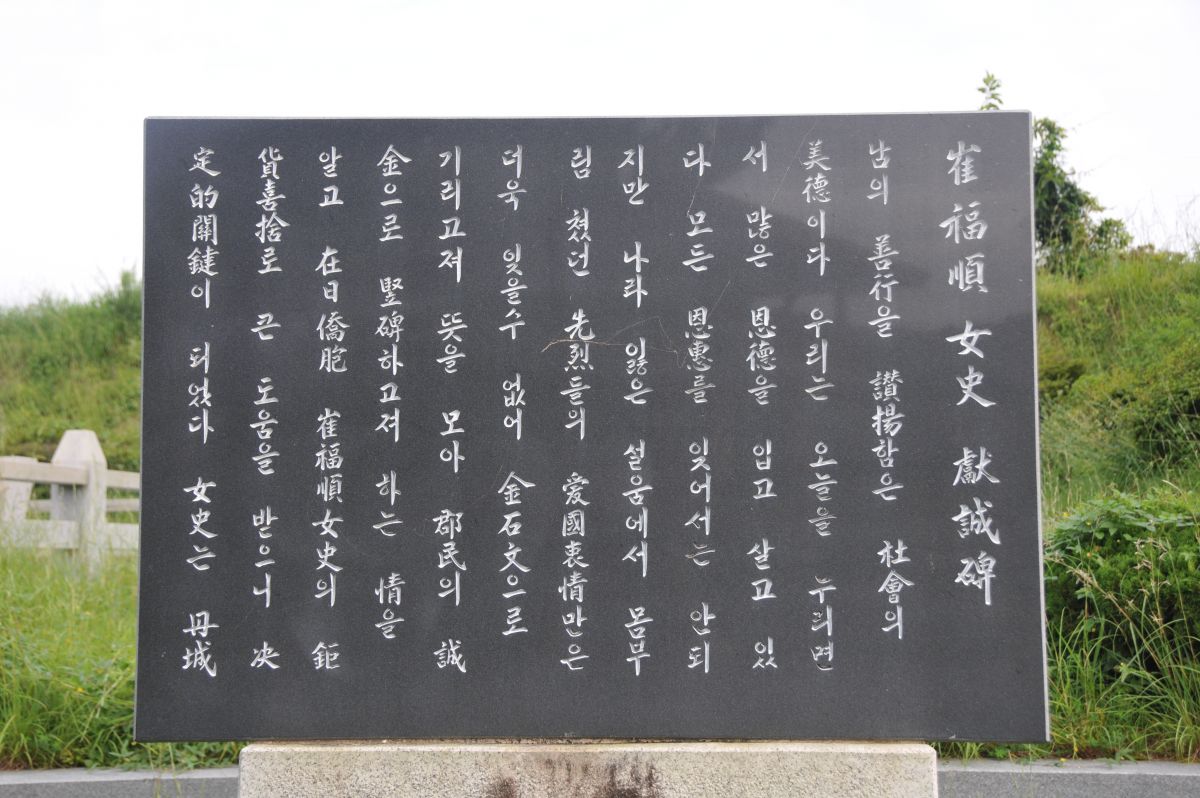 崔福順 女史 獻誠碑
남의 善行을 讚揚함은 社會의
美德이다 우리는 오늘을 누리면
서 많은 恩德을 입고 살고 있
다 모든 恩惠를 잊어서는 안되
지만 나라 잃은 설움에서 몸부
림 쳤던 先烈들의 愛國衷情만은
더욱 잊을수 없어 金石文으로
기리고져 뜻을 모아 郡民의 誠
金으로 竪碑하고져 하는 情을
알고 在日僑胞 崔福順女史의 鉅
貨喜捨로 큰 도움을 받으니 决
定的關鍵이 되었다 女史는 丹城